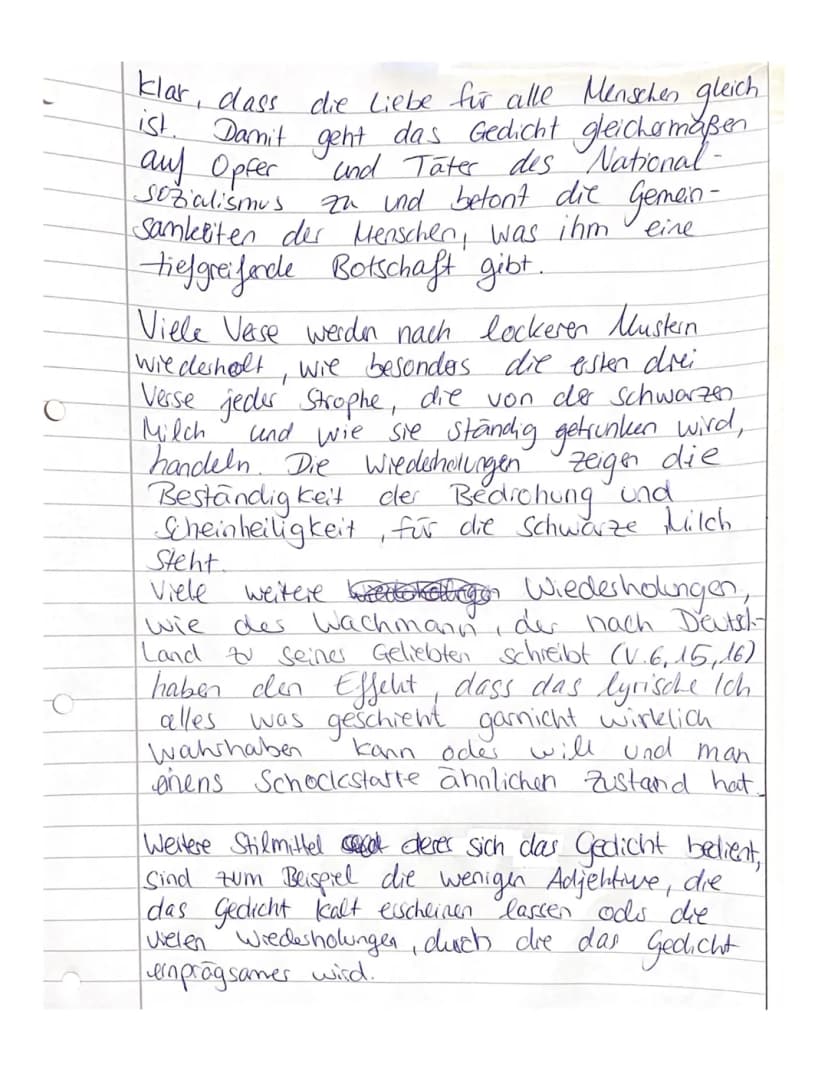 klar, dass die Liebe für alle Menschen gleich
ist. Damit geht das Gedicht gleichermaßen
auf Opfer und Täter des National-
sozialismus zu und betont die Gemein-
samkeiten der Menschen, was ihm eine
tiefgreifende Botschaft gibt.
Viele Verse werden nach lockeren Mustern
wiederholt, wie besonders die ersten drei
Verse jeder Strophe, die von der schwarzen
Milch und wie sie ständig getrunken wird,
handeln. Die Wiederholungen zeigen die
Beständigkeit der Bedrohung und
Scheinheiligkeit, für die schwarze Milch
steht.
Viele weitere Wiederholungen,
wie des Wachmann, der nach Deutsch-
land zu seiner Geliebten schreibt (V.6,15,16)
haben den Effekt, dass das lyrische Ich
alles was geschieht garnicht wirklich
wahrhaben kann oder will und man
einens Schockstarre ähnlichen Zustand hat.
Weitere Stilmittel derer sich das Gedicht bedient,
sind zum Beispiel die wenigen Adjektive, die
das Gedicht kalt erscheinen lassen oder die
vielen Wiederholungen, durch die das Gedicht
einprägsamer wird.